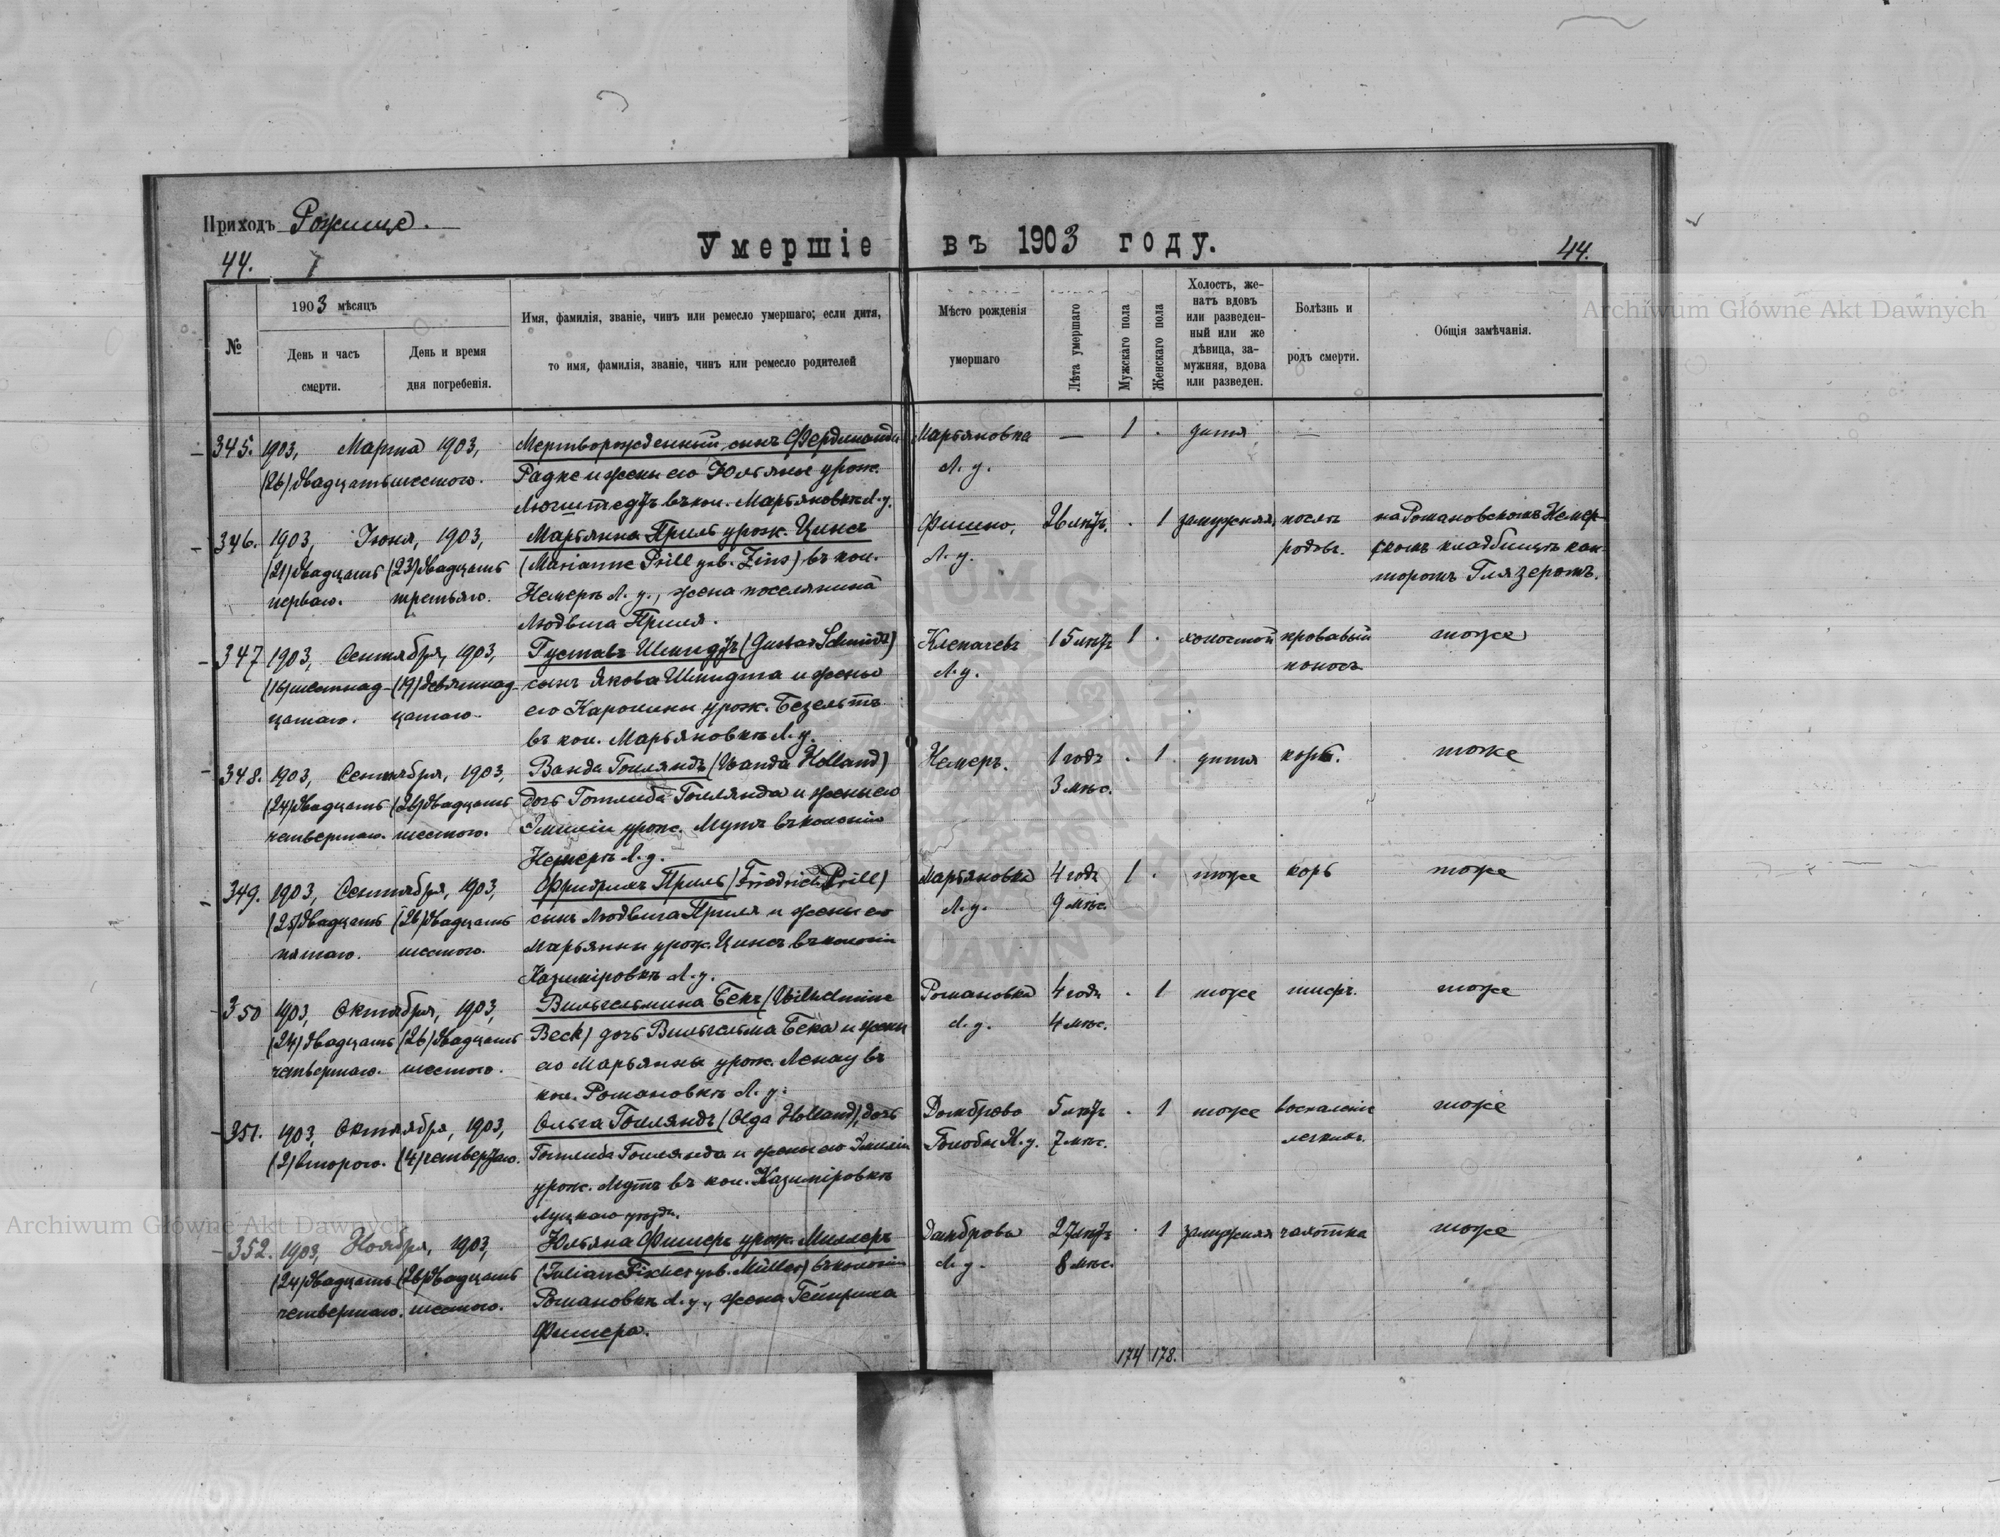 Приходъ Рожище.
Умершіе въ 1903 году.
44.
44.
№
1903 мѣсяцъ
День и часъ
смерти.
День и время
дня погребенія.
Имя, фамилія, званіе, чинъ или ремесло умершаго; если дитя,
то имя, фамилія, званіе, чинъ или ремесло родителей
Мѣсто рожденія
умершаго
Лѣта умершаго
Мужскаго пола
Женскаго пола
Холостъ, же-
натъ вдовъ
или разведен-
ный или же
дѣвица, за-
мужняя, вдова
или разведен.
Болѣзнь и
родъ смерти.
Общія замѣчанія.
Archiwum Główne Akt Dawnych
345. 1903, Марта 1903, Мертворожденный сынъ Фердинанда Марьяновка — 1 . дитя —
(26) двадцать шестого. Радке и жены его Юльяны урож. Л. у.
въ кол. Марьяновкѣ Л. у.
346. 1903, Іюня, 1903, Марьянна Приль урож. Цинсъ Фишно, 26 лѣтъ . 1 замужняя послѣ на Романовскомъ Немер-
(21) двадцать (23) двадцать (Marianne Prill geb. Zins) въ кол. Л. у. родовъ. скомъ кладбищѣ кан-
перваго. третьяго. Немеръ Л. у., жена поселянина торомъ Глязеромъ.
Людвига Приля.
347 1903, Сентября, 1903, Густавъ Шмидтъ (Gustav Schmidt) Клепачевъ 15 лѣтъ 1 . холостой кровавый тоже
(16) шестнад- (19) девятнад- сынъ Якова Шмидта и жены Л. у. поносъ
цатаго. цатаго. его Каролины урож. Безельтъ
въ кол. Марьяновкѣ Л. у.
348. 1903, Сентября, 1903, Ванда Голляндъ (Wanda Holland) Немеръ. 1 годъ . 1 дитя корь. тоже
(24) двадцать (26) двадцать дочь Готлиба Голлянда и жены его 3 мѣс.
четвертаго. шестого. Эмиліи урож. Мутъ въ колоніи
Немерѣ Л. у.
349. 1903, Сентября, 1903, Фридрихъ Приль (Friedrich Prill) Марьяновка 4 года 1 . тоже корь тоже
(25) двадцать (26) двадцать сынъ Людвига Приля и жены его Л. у. 9 мѣс.
пятаго. шестого. Марьянны урож. Цинсъ въ колоніи
Казиміровкѣ Л. у.
350 1903, Октября, 1903, Вильгельмина Бекъ (Wilhelmine Романовка 4 года . 1 тоже тифъ. тоже
(24) двадцать (26) двадцать Beck) дочь Вильгельма Бека и жены Л. у. 4 мѣс.
четвертаго. шестого. его Марьянны урож. Ленау въ
кол. Романовкѣ Л. у.
351. 1903, Октября, 1903, Ольга Голляндъ (Olga Holland), дочь Домброва 5 лѣтъ . 1 тоже воспаленіе тоже
(2) второго. (4) четвертаго. Готлиба Голлянда и жены его Эмиліи Голобы К. у. 7 мѣс. легкихъ.
урож. Мутъ въ кол. Казиміровкѣ
Луцкаго уѣзда.
352. 1903, Ноября, 1903, Юльяна Фишеръ урож. Миллеръ Домброва 27 лѣтъ . 1 замужняя чахотка тоже
(24) двадцать (26) двадцать (Juliane Fischer geb. Müller) въ колоніи Л. у. 8 мѣс.
четвертаго. шестого. Романовкѣ Л. у., жена Гейнриха
Фишера.
174 178.
Archiwum Główne Akt Dawnych